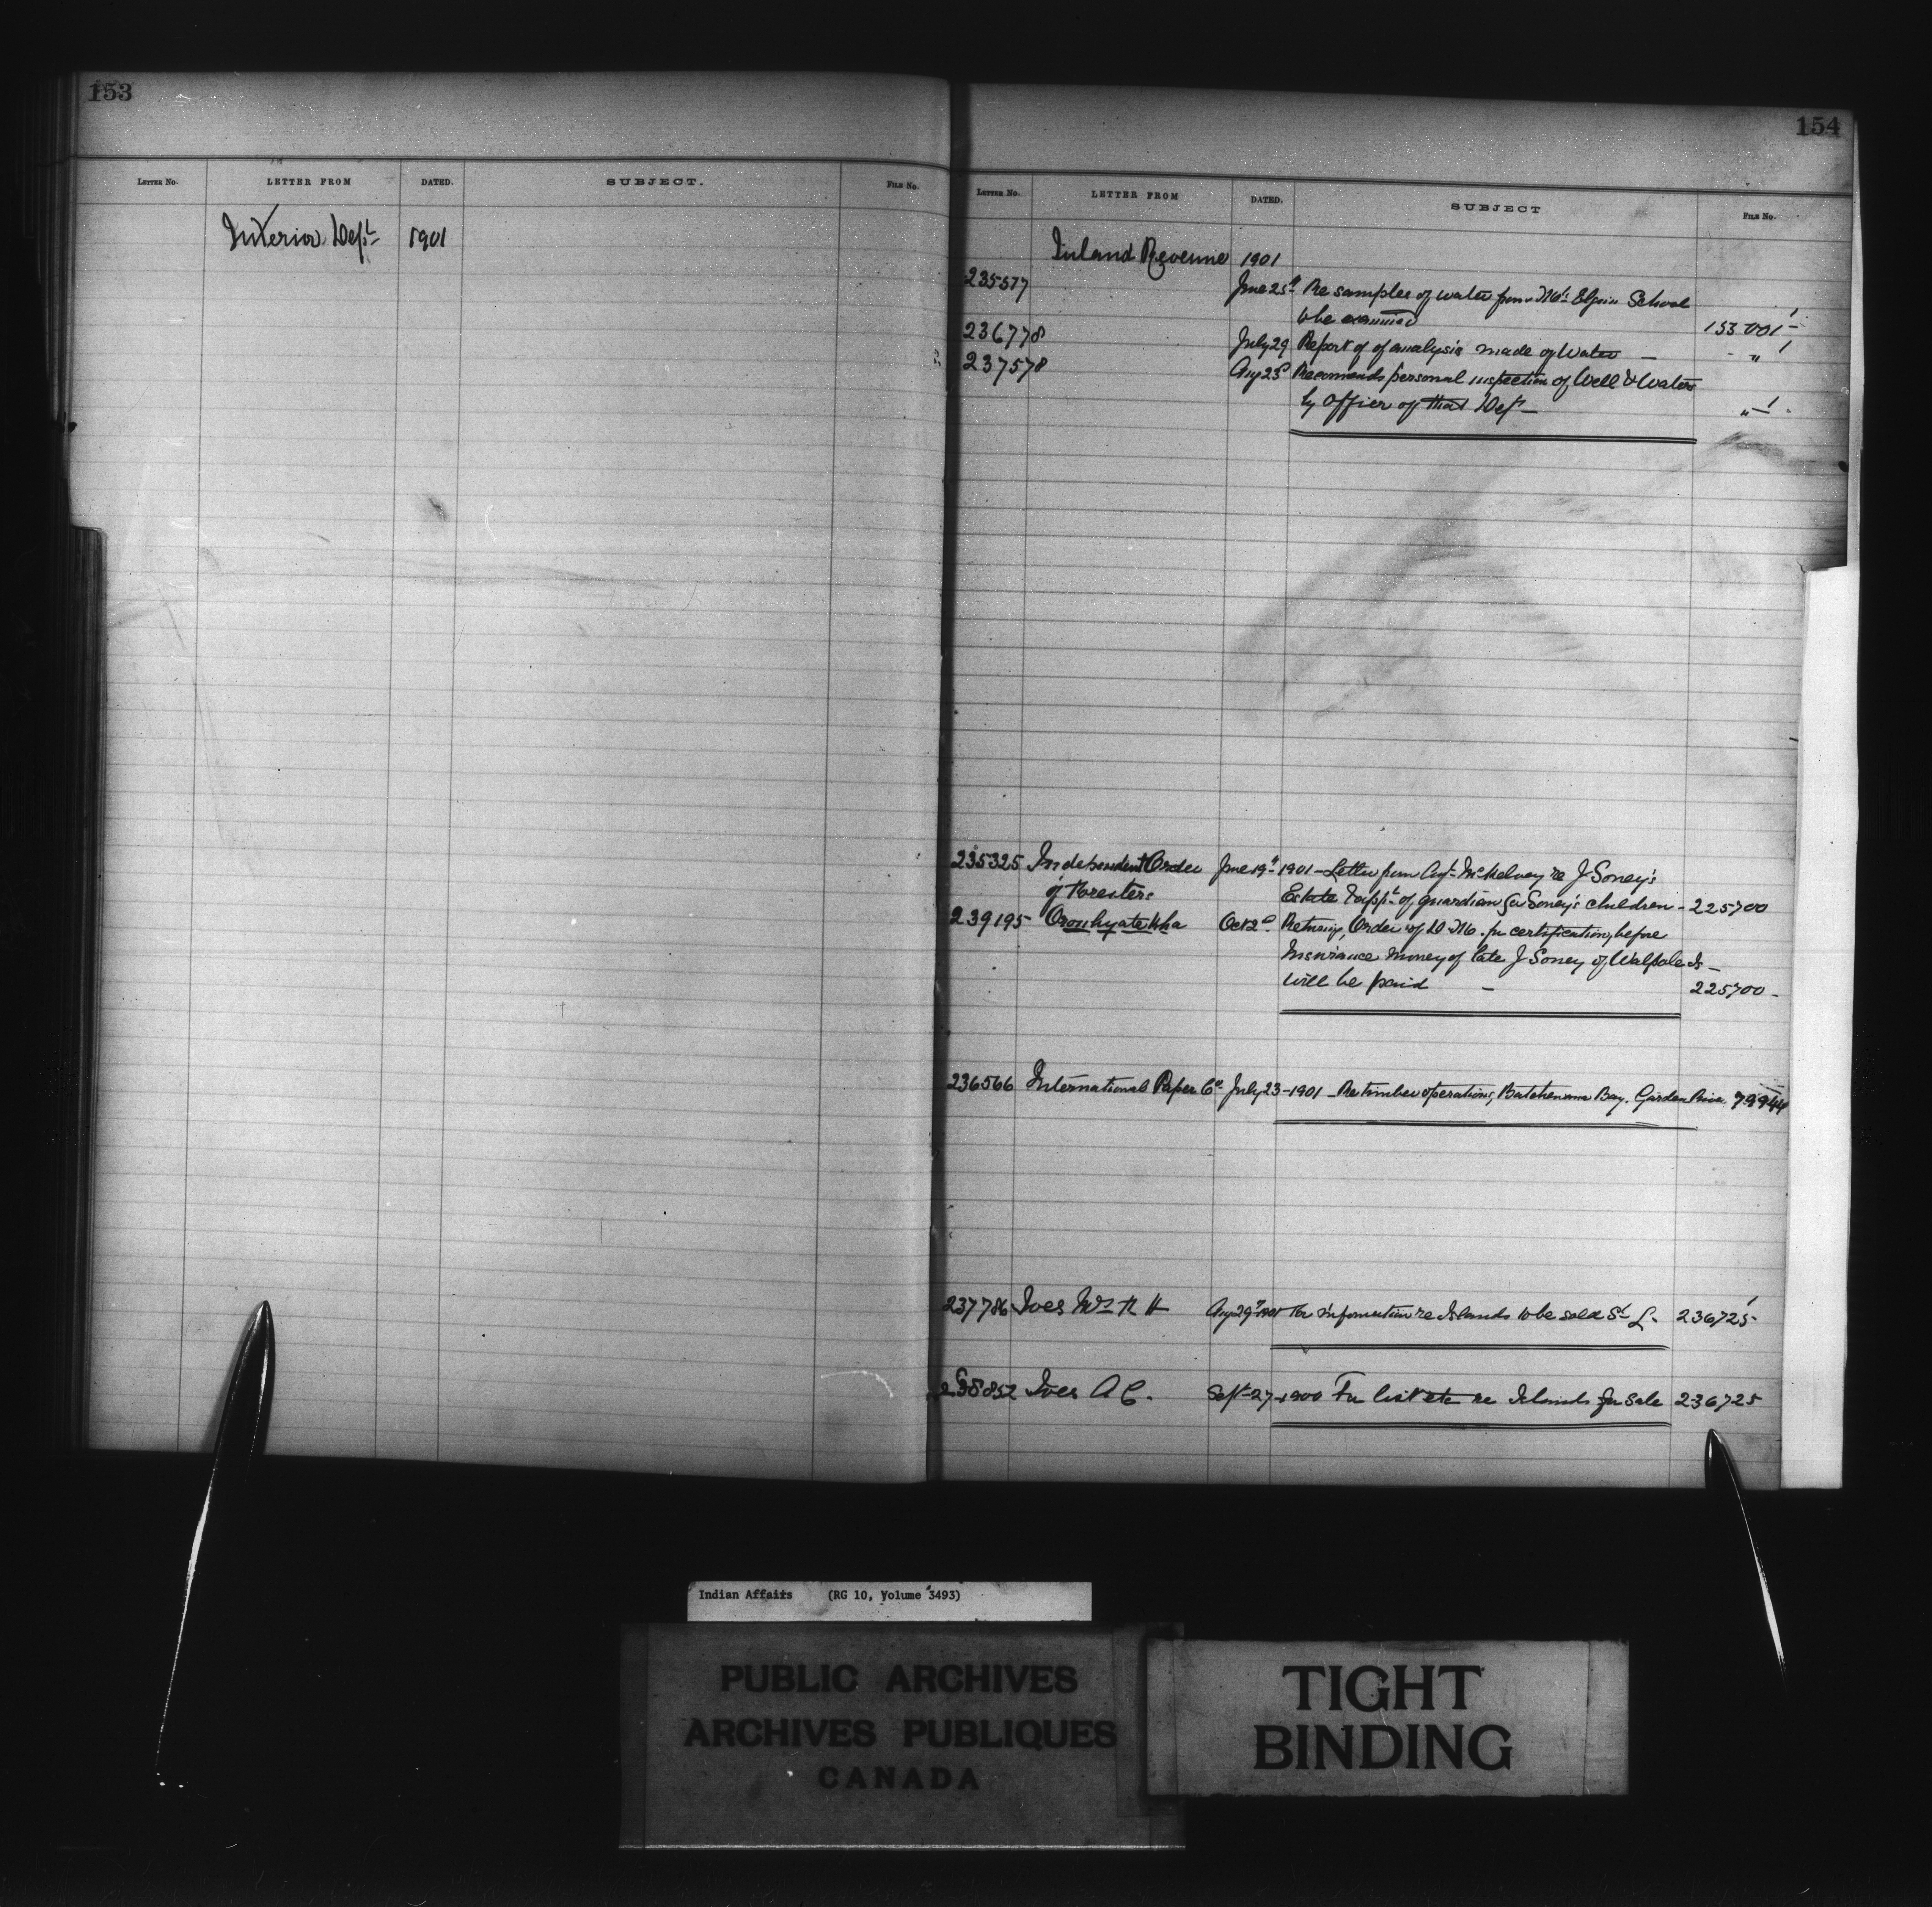 153
LETTER NO. LETTER FROM DATED. SUBJECT. FILE No.
Interior Dept 1901
154
LETTER NO. LETTER FROM DATED. SUBJECT FILE No.
Inland Revenue 1901
235577 June 25th Re samples of water from Mt. Elgin School
to be examined 153001-1
236778 July 29 Report of of analysis made of Water — " 1
237578 Aug 23d Recomends personal inspection of Well & Waters
by Officer of that Dept — " 1
235325 Independent Order June 19th 1901 - Letter from Agt McKelvey re J Soney's
of Foresters Estate & appt of guardian for Soney's children - 225700
239195 Oronhyatekha Oct 2d Returng, Order of D. M. for certification, before
Insurance money of late J Soney of Walpole Is -
will be paid - 225700 -
236566 International Paper Co. July 23-1901 - Re timber operations, Batchewana Bay. Garden River 79944
237786 Ives Mrs H H Aug 29th 1901 For information re Islands to be sold St L. 236725-1
238852 Ives A C. Sept-27-1900 For list etc re Islands for sale 236725
Indian Affairs (RG 10, Volume 3493)
PUBLIC ARCHIVES
ARCHIVES PUBLIQUES
CANADA
TIGHT
BINDING